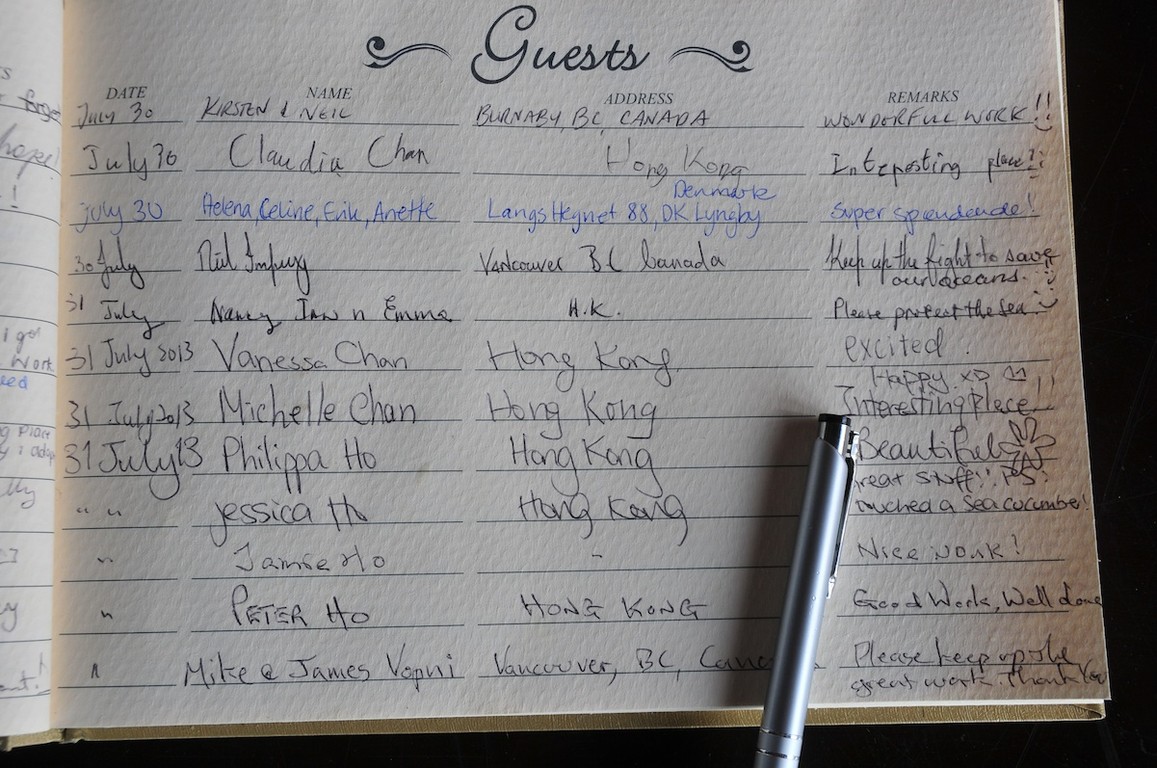 Guests
DATE NAME ADDRESS REMARKS
July 30 KIRSTEN & NEIL BURNABY, BC, CANADA WONDERFUL WORK!!
July 30 Claudia Chan Hong Kong place!!
Denmark
july 30 Helena, Celine, Erik, Anette Langs Hegnet 88, DK Lyngby Super !
30 July Vancouver BC Canada Keep up the fight to save
our oceans.
31 July Nancy n Emma H.K. Please protect the sea.
31 July 2013 Vanessa Chan Hong Kong excited!
Happy xD
31 July 2013 Michelle Chan Hong Kong Interesting place!!
31 July 13 Philippa Ho Hong Kong Beautiful
reat stuff!! PS:
" " jessica Ho Hong Kong ouched a sea cucumber!
" Jamie Ho - Nice work!
" PETER HO HONG KONG Good Work, Well done
" Mike & James Vopni Vancouver, BC, Cana Please keep up the
great work. Thank You